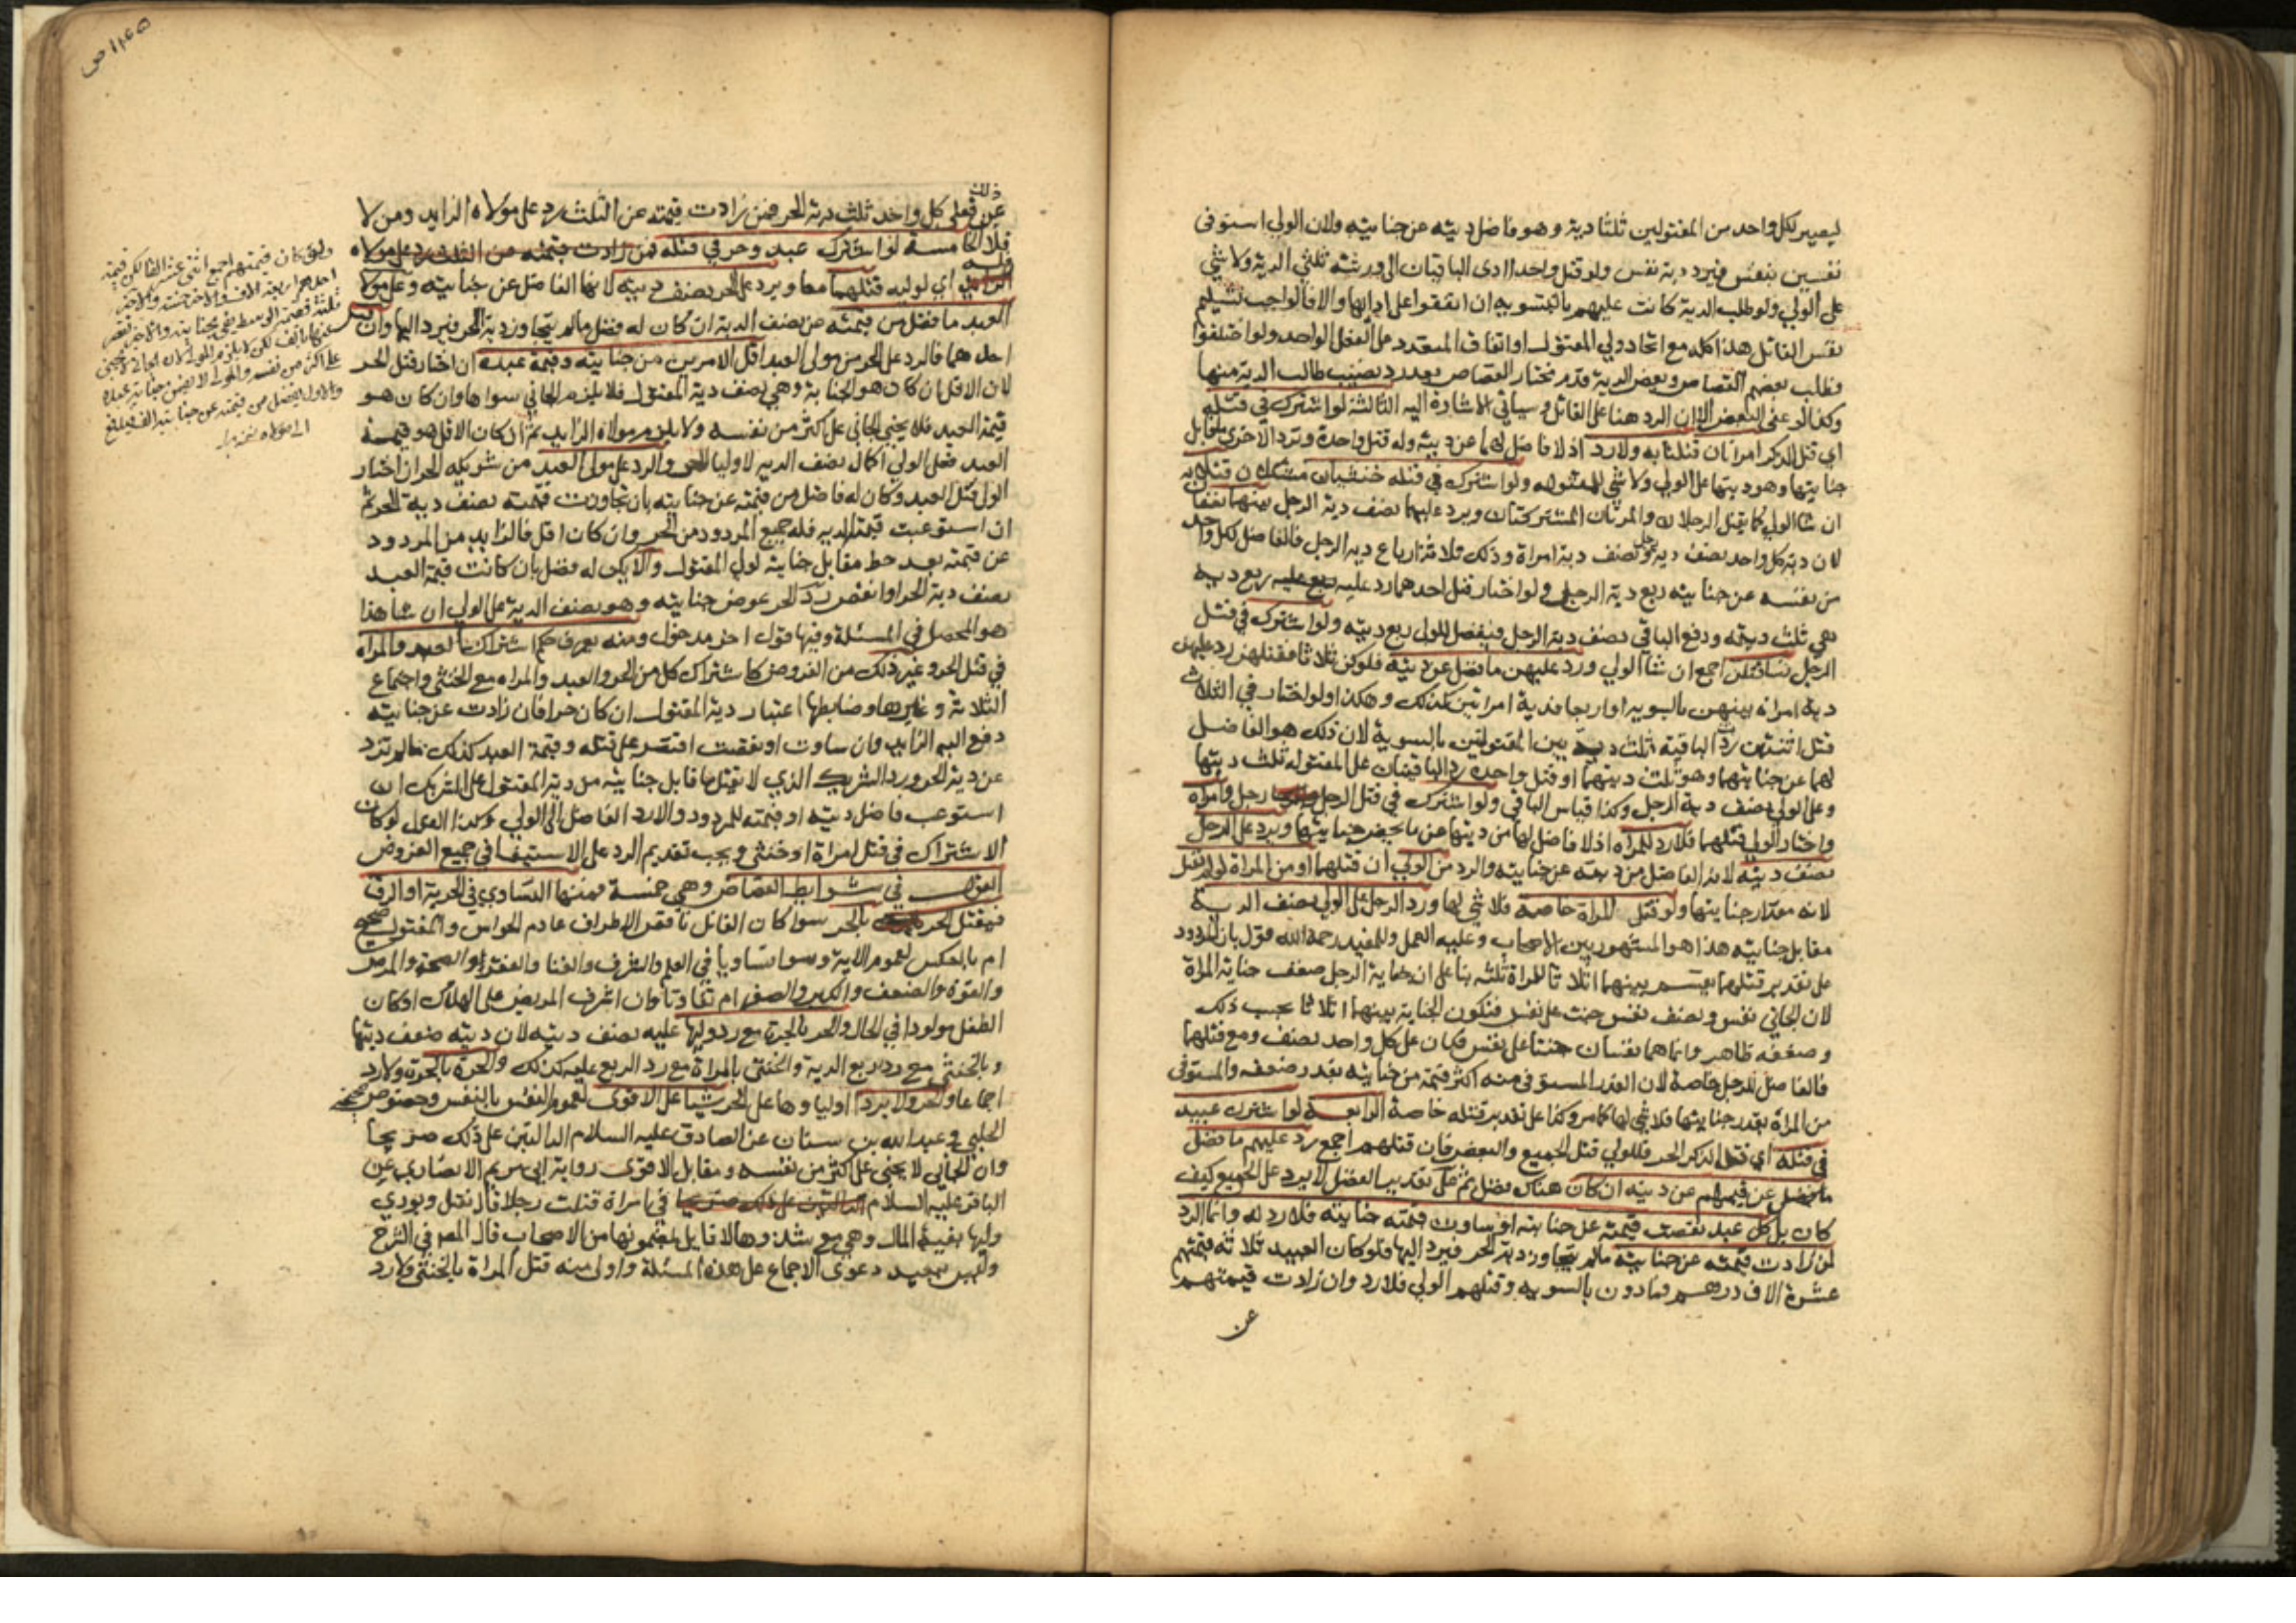 ليصير لكل واحد من المقتولين ثلثا دية وهو فاضل ديته عن جنايته ولان الولي استوفى
نفسين بنفس فيرد دية نفس ولو قتل واحدا ادى الباقيان الى ورثته ثلثي الدية ولا شي
على الولي ولو طلب الدية كانت عليهم بالتسوية ان اتفقوا على ادائها والا فالواجب تسليم
نفس القاتل هذا كله مع اتحاد ولي المقتول او اتفاق المتعدد على الفعل الواحد ولو اختلفوا
فطلب بعضهم القصاص وبعض الدية قدم مختار القصاص بعد رد نصيب طالب الدية منها
وكذا لو عفى البعض الا ان الرد هنا على القاتل وسياتي الاشارة اليه الثالثة لو اشترك في قتله
اي قتل الذكر امراتان قتلتا به ولا رد اذ لا فاضل لهما عن ديته وله قتل واحدة وترد الاخرى ما قابل
جنايتها وهو ديتها على الولي ولا شي للمقتولة ولو اشترك في قتله خنثيان مشكلان قتلا به
ان شا الولي كما يقتل الرجلان والمراتان المشتركتان ويرد عليهما نصف دية الرجل بينهما نصفان
لان دية كل واحد نصف دية رجل ونصف دية امراة وذلك ثلاثة ارباع دية الرجل فالفاضل لكل واحد
من نفسه عن جنايته ربع دية الرجل ولو اختار قتل احدهما رد عليه ربع دية
هي ثلث ديته ودفع الباقي نصف دية الرجل فيفضل للولي ربع ديته ولو اشترك في قتل
الرجل نسا قتلن اجمع ان شا الولي ورد عليهن ما فضل عن ديته فلو كن ثلاثا فقتلهن رد عليهن
دية امراة بينهن بالسوية او اربعا فدية امراتين كذلك وهكذا ولو اختار في الثلاث
قتل اثنتين ردت الباقية ثلث دية بين المقتولتين بالسوية لان ذلك هو الفاضل
لهما عن جنايتهما وهو ثلث ديتهما او قتل واحدة رد الباقيتان على المقتولة ثلث ديتها
وعلى الولي نصف دية الرجل وكذا قياس الباقي ولو اشترك في قتل الرجل رجل وامراة
واختار الولي قتلهما فلا رد للمراة اذ لا فاضل لها من ديتها عن ما يخص جنايتها ويرد على الرجل
نصف ديته لانه الفاضل من ديته عن جنايته والرد من الولي ان قتلهما او من المراة لو لم تقتل
لانه مقدار جنايتها ولو قتل المراة خاصة فلا شي لها ورد الرجل على الولي نصف الدية
مقابل جنايته هذا هو المشهور بين الاصحاب وعليه العمل وللمفيد رحمه الله قول بان المردود
على تقدير قتلهما يقسم بينهما اثلاثا للمراة ثلثه بنا على ان جناية الرجل ضعف جناية المراة
لان الجاني نفس ونصف نفس جنت على نفس فتكون الجناية بينهما اثلاثا بحسب ذلك
وضعفه ظاهر وانما هما نفسان جنتا على نفس فكان على كل واحد نصف ومع قتلهما
فالفاضل للرجل خاصة لان القدر المستوفى منه اكثر قيمة من جنايته بقدر ضعفه والمستوفى
من المراة بقدر جنايتها فلا شي لها كما مر وكذا على تقدير قتله خاصة الرابعة لو اشترك عبيد
في قتله اي قتل الذكر الحر فللولي قتل الجميع والبعض فان قتلهم اجمع رد عليهم ما فضل
من قيمهم عن ديته ان كان هناك فضل ثم على تقدير الفضل لا يرد على الجميع كيف
كان بل كل عبد نقصت قيمته عن جنايته او ساوت قيمته جنايته فلا رد له وانما الرد
لمن زادت قيمته عن جنايته ما لم يتجاوز دية الحر فيرد اليها فلو كان العبيد ثلاثة قيمتهم
عشرة الاف درهم فما دون بالسوية وقتلهم الولي فلا رد وان زادت قيمتهم
عن
ذلك
عن فعلى كل واحد ثلث دية الحر فمن زادت قيمته عن الثلث رد على مولاه الزايد ومن لا
فلا الخامسة لو اشترك عبد وحر في قتله
اي لوليه قتلهما معا ويرد على الحر نصف ديته لانها الفاضل عن جنايته وعلى مولا
العبد ما فضل من قيمته عن نصف الدية ان كان له فضل ما لم يتجاوز دية الحر فيرد اليها وان قتل
احدهما فالرد على الحر من مولى العبد اقل الامرين من جنايته وقيمة عبده ان اختار قتل الحر
لان الاقل ان كان هو الجناية وهي نصف دية المقتول فلا يلزم الجاني سواها وان كان هو
قيمة العبد فلا يجني الجاني على اكثر من نفسه ولا يلزم مولاه الزايد ثم ان كان الاقل هو قيمة
العبد فعلى الولي اكمال نصف الدية لاوليا الحر والرد على مولى العبد من شريكه الحر ان اختار
الولي قتل العبد وكان له فاضل من قيمته عن جنايته بان تجاوزت قيمته نصف دية الحر ثم
ان استوعبت قيمته الدية فله جميع المردود من الحر وان كان اقل فالزايد من المردود
عن قيمته بعد حط مقابل جنايته لولي المقتول والا يكن له فضل بان كانت قيمة العبد
نصف دية الحر او انقص رد الحر عوض جنايته وهو نصف الدية على الولي ان شا هذا
هو المحصل في المسئلة وفيها قول اخر مدخول ومنه يعرف حكم اشتراك العبد والمراة
في قتل الحر وغير ذلك من الفروض كاشتراك كل من الحر والعبد والمراة مع الخنثى واجتماع
الثلاثة وغيرها وضابطها اعتبار دية المقتول ان كان حرا فان زادت عن جنايته
دفع اليه الزايد وان ساوت او نقصت اقتصر على قتله وقيمة العبد كذلك ما لم تزد
عن دية الحر ورد الشريك الذي لا يقتل ما قابل جنايته من دية المقتول على الشريك ان
استوعب فاضل ديته او قيمته للمردود والا رد الفاضل الى الولي وكذا القول لو كان
الاشتراك في قتل امراة او خنثى ويجب تقديم الرد على الاستيفا في جميع الفروض
القول في شرايط القصاص وهي خمسة فمنها التساوي في الحرية او الرق
فيقتل الحر بالحر سوا كان القاتل ناقص الاطراف عادم الحواس والمقتول صحيح
ام بالعكس لعموم الاية وسوا تساويا في العلم والشرف والغنا والفقر والصحة والمرض
والقوة والضعف والكبر والصغر ام تفاوتا وان اشرف المريض على الهلاك او كان
الطفل مولودا في الحال والحر بالحرة مع رد وليها عليه نصف ديته لان ديته ضعف ديتها
وبالخنثى مع رد ربع الدية والخنثى بالمراة مع رد الربع عليه كذلك والحرة بالحرة ولا رد
اجماعا والحر ولا يرد اولياوها على الحر شيا على الاقوى لعموم النفس بالنفس وخصوص صحيحة
الحلبي وعبد الله بن سنان عن الصادق عليه السلام الدالتين على ذلك صريحا
وان الجاني لا يجني على اكثر من نفسه ومقابل الاقوى رواية ابي مريم الانصاري عن
الباقر عليه السلام في امراة قتلت رجلا قال تقتل ويودي
وليها بقية المال وهي مع شذوذها لا قايل بمضمونها من الاصحاب قال المص في الشرح
وليس ببعيد دعوى الاجماع على هذه المسئلة واولى منه قتل المراة بالخنثى ولا رد